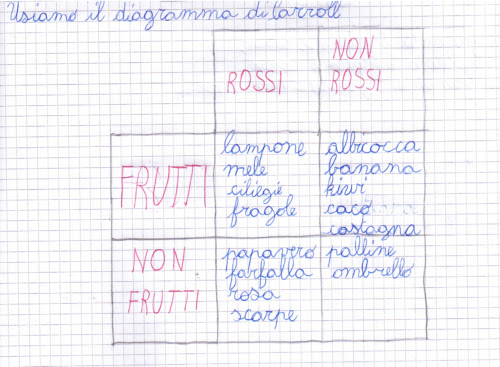 Usiamo il diagramma di Carroll
ROSSI
NON
ROSSI
FRUTTI
lampone
mele
ciliegie
fragole
albicocca
banana
kiwi
caco
castagna
NON
FRUTTI
papavero
farfalla
rosa
scarpe
palline
ombrello